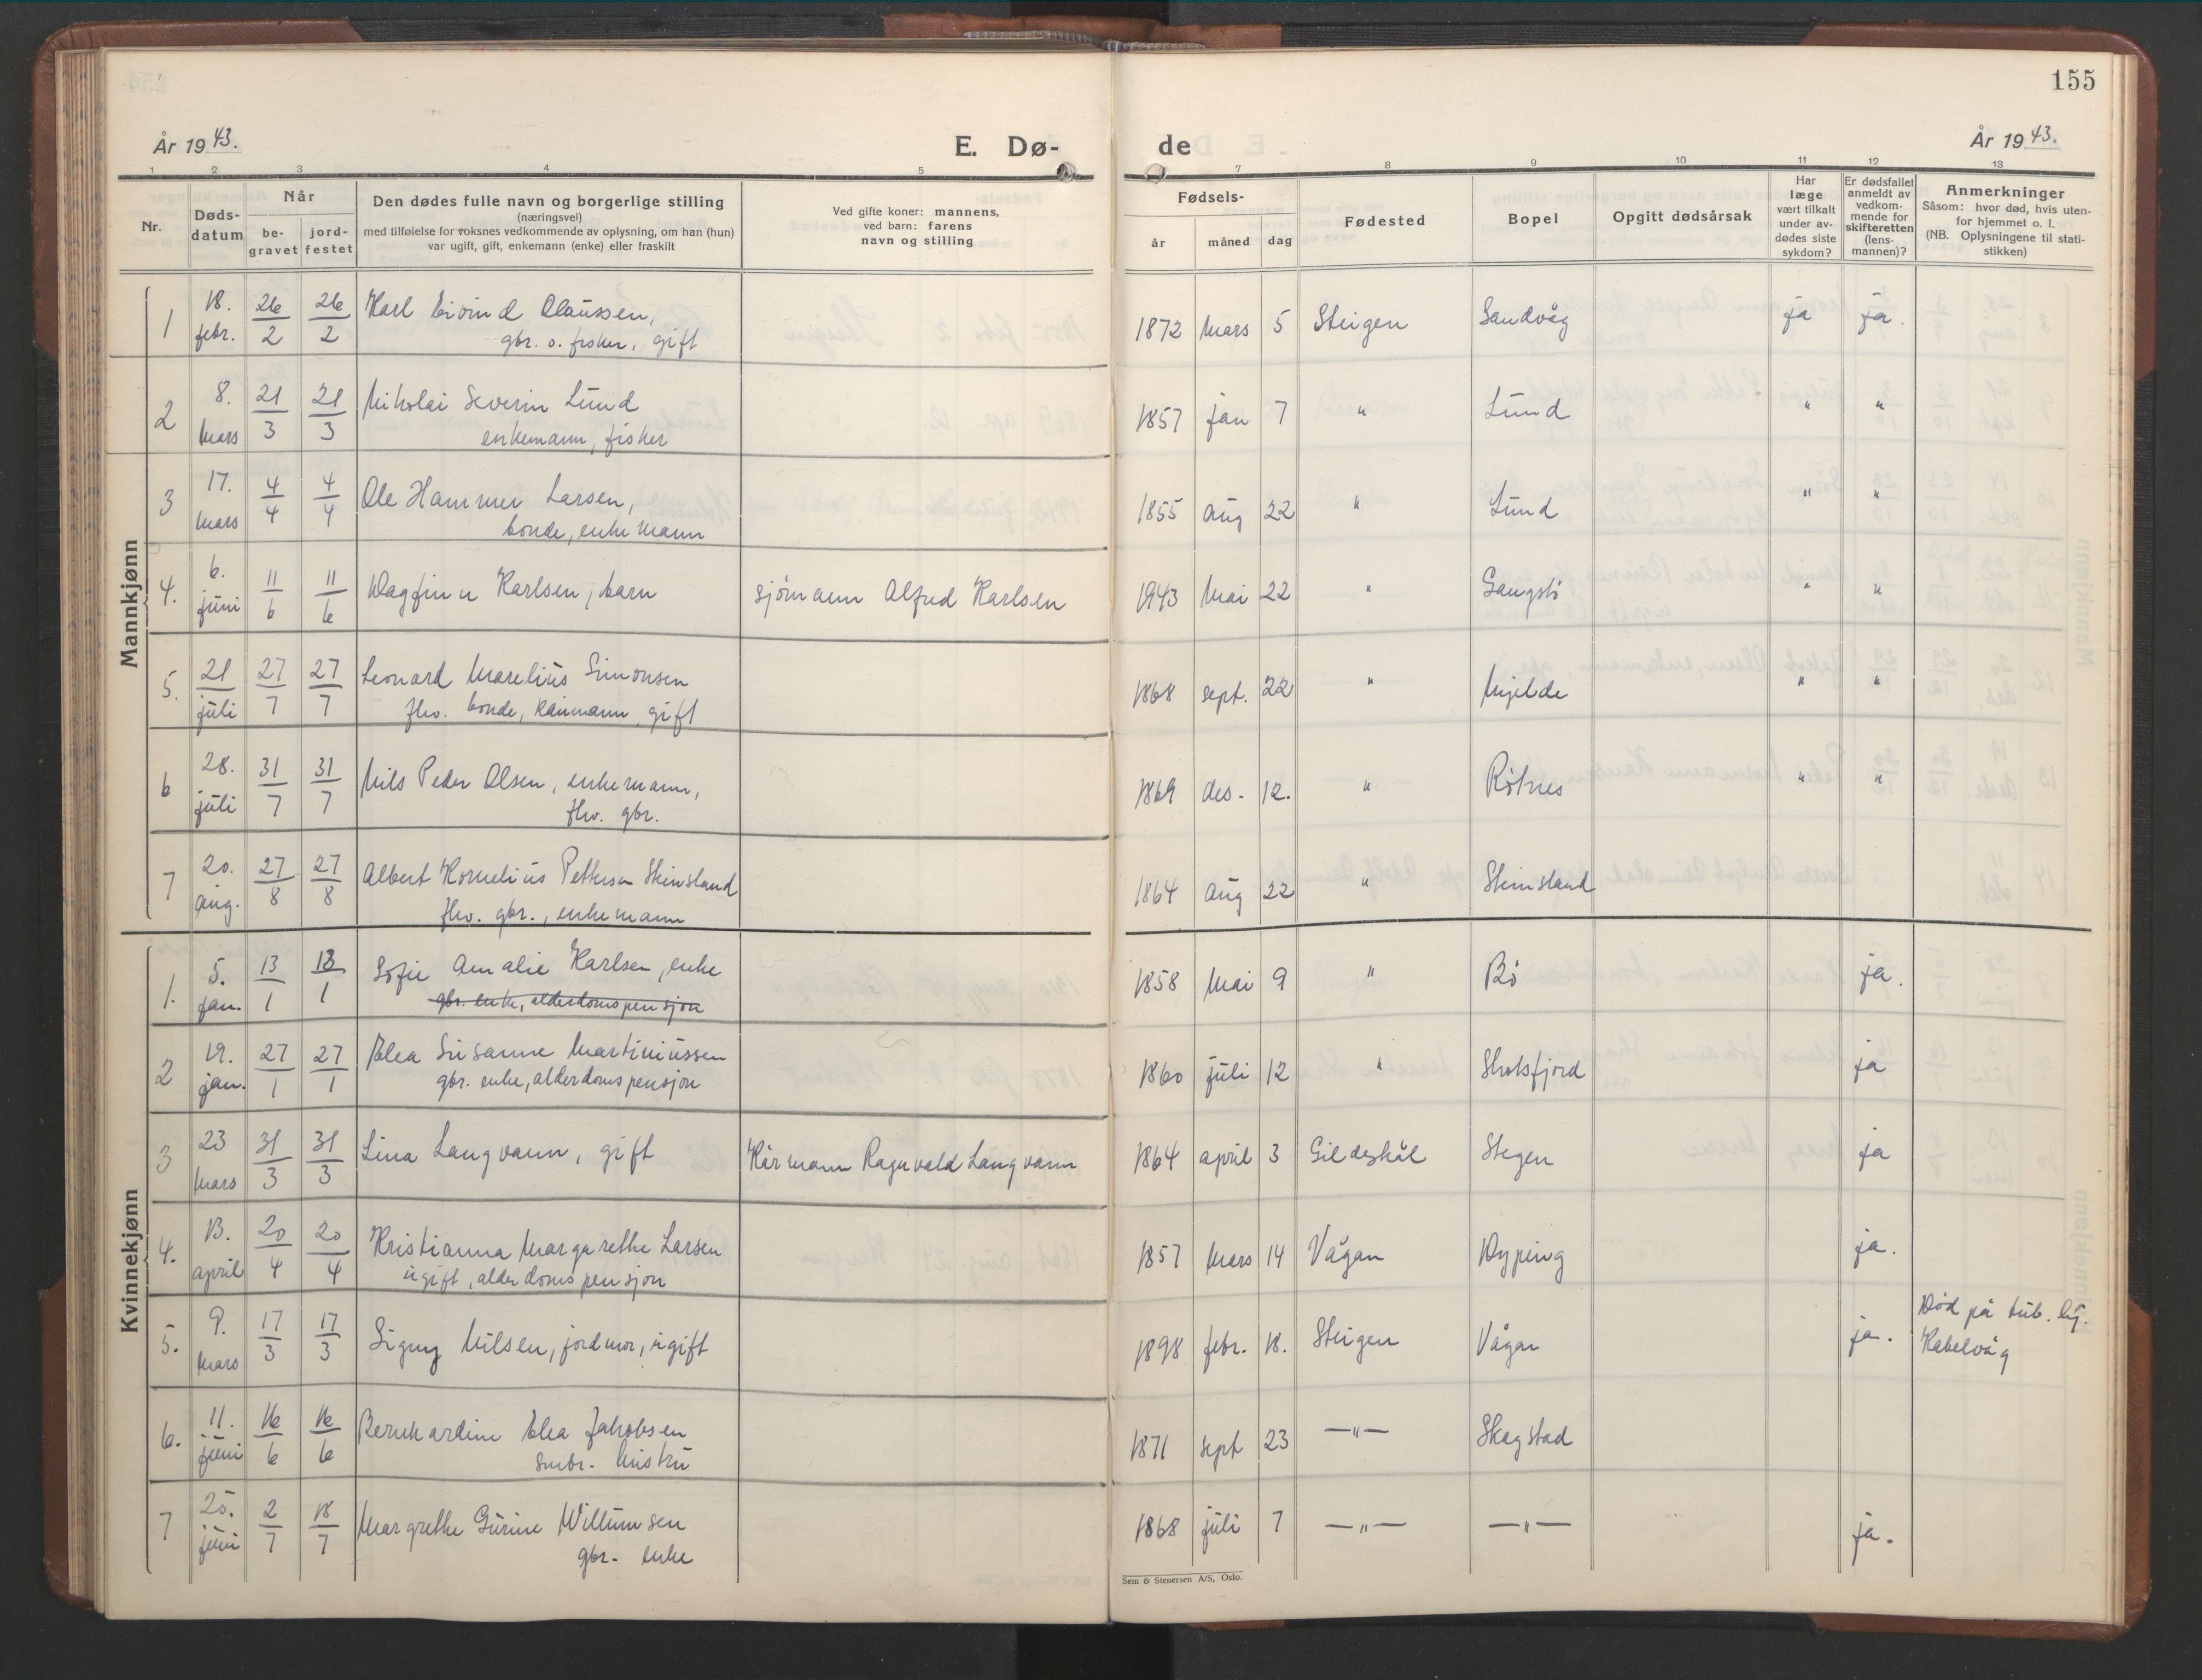 155
År 1943.
E. Dø-
de
År 1943.
1 2 3 4 5 7 8 9 10 11 12 13
Nr.
Døds-
datum
Når
be-
gravet
jord-
festet
Den dødes fulle navn og borgerlige stilling
(næringsvei)
med tilføielse for voksnes vedkommende av oplysning, om han (hun)
var ugift, gift, enkemann (enke) eller fraskilt
Ved gifte koner: mannens,
ved barn: farens
navn og stilling
Fødsels-
år måned dag
Fødested
Bopel
Opgitt dødsårsak
Har
læge
vært tilkalt
under av-
dødes siste
sykdom?
Er dødsfallet
anmeldt av
vedkom-
mende for
skifteretten
(lens-
mannen)?
Anmerkninger
Såsom: hvor død, hvis uten-
for hjemmet o. l.
(NB. Oplysningene til stati-
stikken)
Mannkjønn
1 18. febr. 26/2 26/2 Karl Eivind Olaussen, 1872 Mars 5 Steigen Sandvåg ja ja.
gbr. o. fisker, gift
2 8. Mars 21/3 21/3 Nikolai Severin Lund 1857 jan 7 " Lund " "
enkemann, fisker
3 17. Mars 4/4 4/4 Ole Hammer Larsen, 1855 aug 22 " Lund " "
bonde, enkemann
4. 6. juni 11/6 11/6 Dagfinn Karlsen, barn sjømann Alfred Karlsen 1943 Mai 22 " Gangstø " "
5. 21 juli 27/7 27/7 Leonard Marelius Simonsen 1868 sept. 22 " Mjelde " "
fhv. bonde, kårmann, gift
6 28. juli 31/7 31/7 Nils Peder Olsen, enkemann, 1869 des. 12. " Røtnes " "
fhv. gbr.
7 20. aug. 27/8 27/8 Albert Kornelius Pettersen Steinsland 1864 aug 22 " Steinsland
fhv. gbr., enkemann
Kvinnekjønn
1. 5. jan. 13/1 13/1 Sofie Amalie Karlsen, enke 1858 Mai 9 " Bø ja.
gbr. enke, alderdomspensjon
2 19. jan. 27/1 27/1 Elea Susanne Martiniussen 1860 juli 12 " Skotsfjord ja
gbr. enke, alderdomspensjon
3 23 Mars 31/3 31/3 Lina Langvann, gift Kårmann Ragnvald Langvann 1864 april 3 Gildeskål Stegen ja
4. 13. april 20/4 20/4 Kristianna Margarethe Larsen 1857 Mars 14 Vågan Dyping ja.
ugift, alderdomspensjon
5. 9. Mars 17/3 17/3 Signy Nilsen, jordmor, ugift 1898 febr. 18. Steigen Vågan ja. Død på tub. hj.
Kabelvåg
6. 11. juni 16/6 16/6 Bernhardine Elea Jakobsen 1871 sept 23 —"— Skagstad
småbr. hustru
7 25. juni 2/7 18/7 Margrethe Gurine Willumsen 1868 juli 7 —"— —"— ja.
gbr. enke
Sem & Stenersen A/S, Oslo.